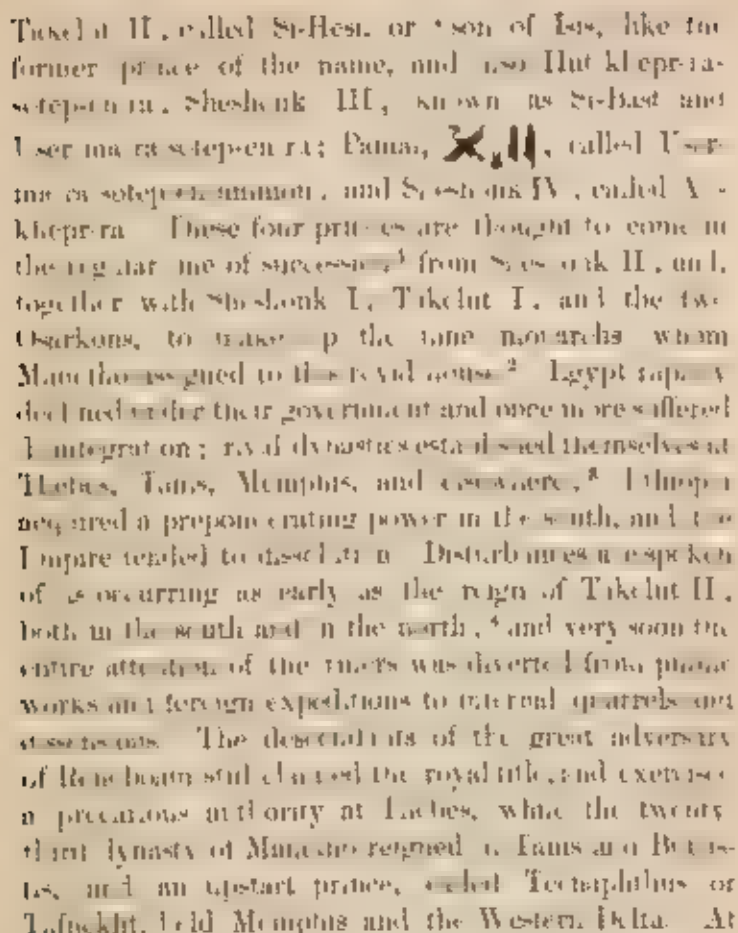 Tikelut II., called Si-Hesi. or "son of Isis, like the
former prince of the name, and also Hut-khepr-ra-
sotep-en-ra. Sheshonk III., known as Si-Bast and
User-ma-ra-sotep-en-ra; Pamai, called User-
ma-ra-sotep-en-ammon, and Sheshonk IV., called
khepr-ra These four princes are thought to come in
the regular line of succession ¹ from Sheshonk II., and,
together with Sheshonk I., Tikelut I., and the two
Osarkons, to make up the nine monarchs whom
Manetho assigned to this royal house ² Egypt rapidly
declined under their government and once more suffered
disintegration; rival dynasties established themselves at
Thebes, Tanis, Memphis, and elsewhere, ³ Ethiopia
acquired a preponderating power in the south, and the
Empire tended to dissolution Disturbances are spoken
of as occurring as early as the reign of Tikelut II.,
both in the south and in the north, ⁴ and very soon the
entire attention of the rulers was diverted from public
works and foreign expeditions to internal quarrels and
dissensions The descendants of the great adversary
of Rehoboam still claimed the royal title, and exercised
a precarious authority at Thebes, while the twenty
third dynasty of Manetho reigned in Tanis and Bubas-
tis, and an upstart prince, called Tecnaphthus or
Tafnekht, held Memphis and the Western Delta. At